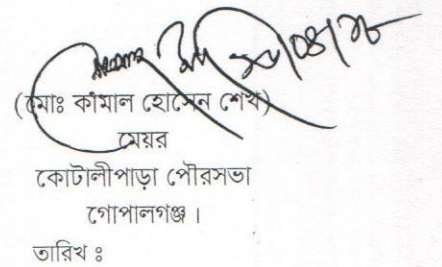 (মোঃ কামাল হোসেন শেখ)
মেয়র
কোটালীপাড়া পৌরসভা
গোপালগঞ্জ।
তারিখ ঃ